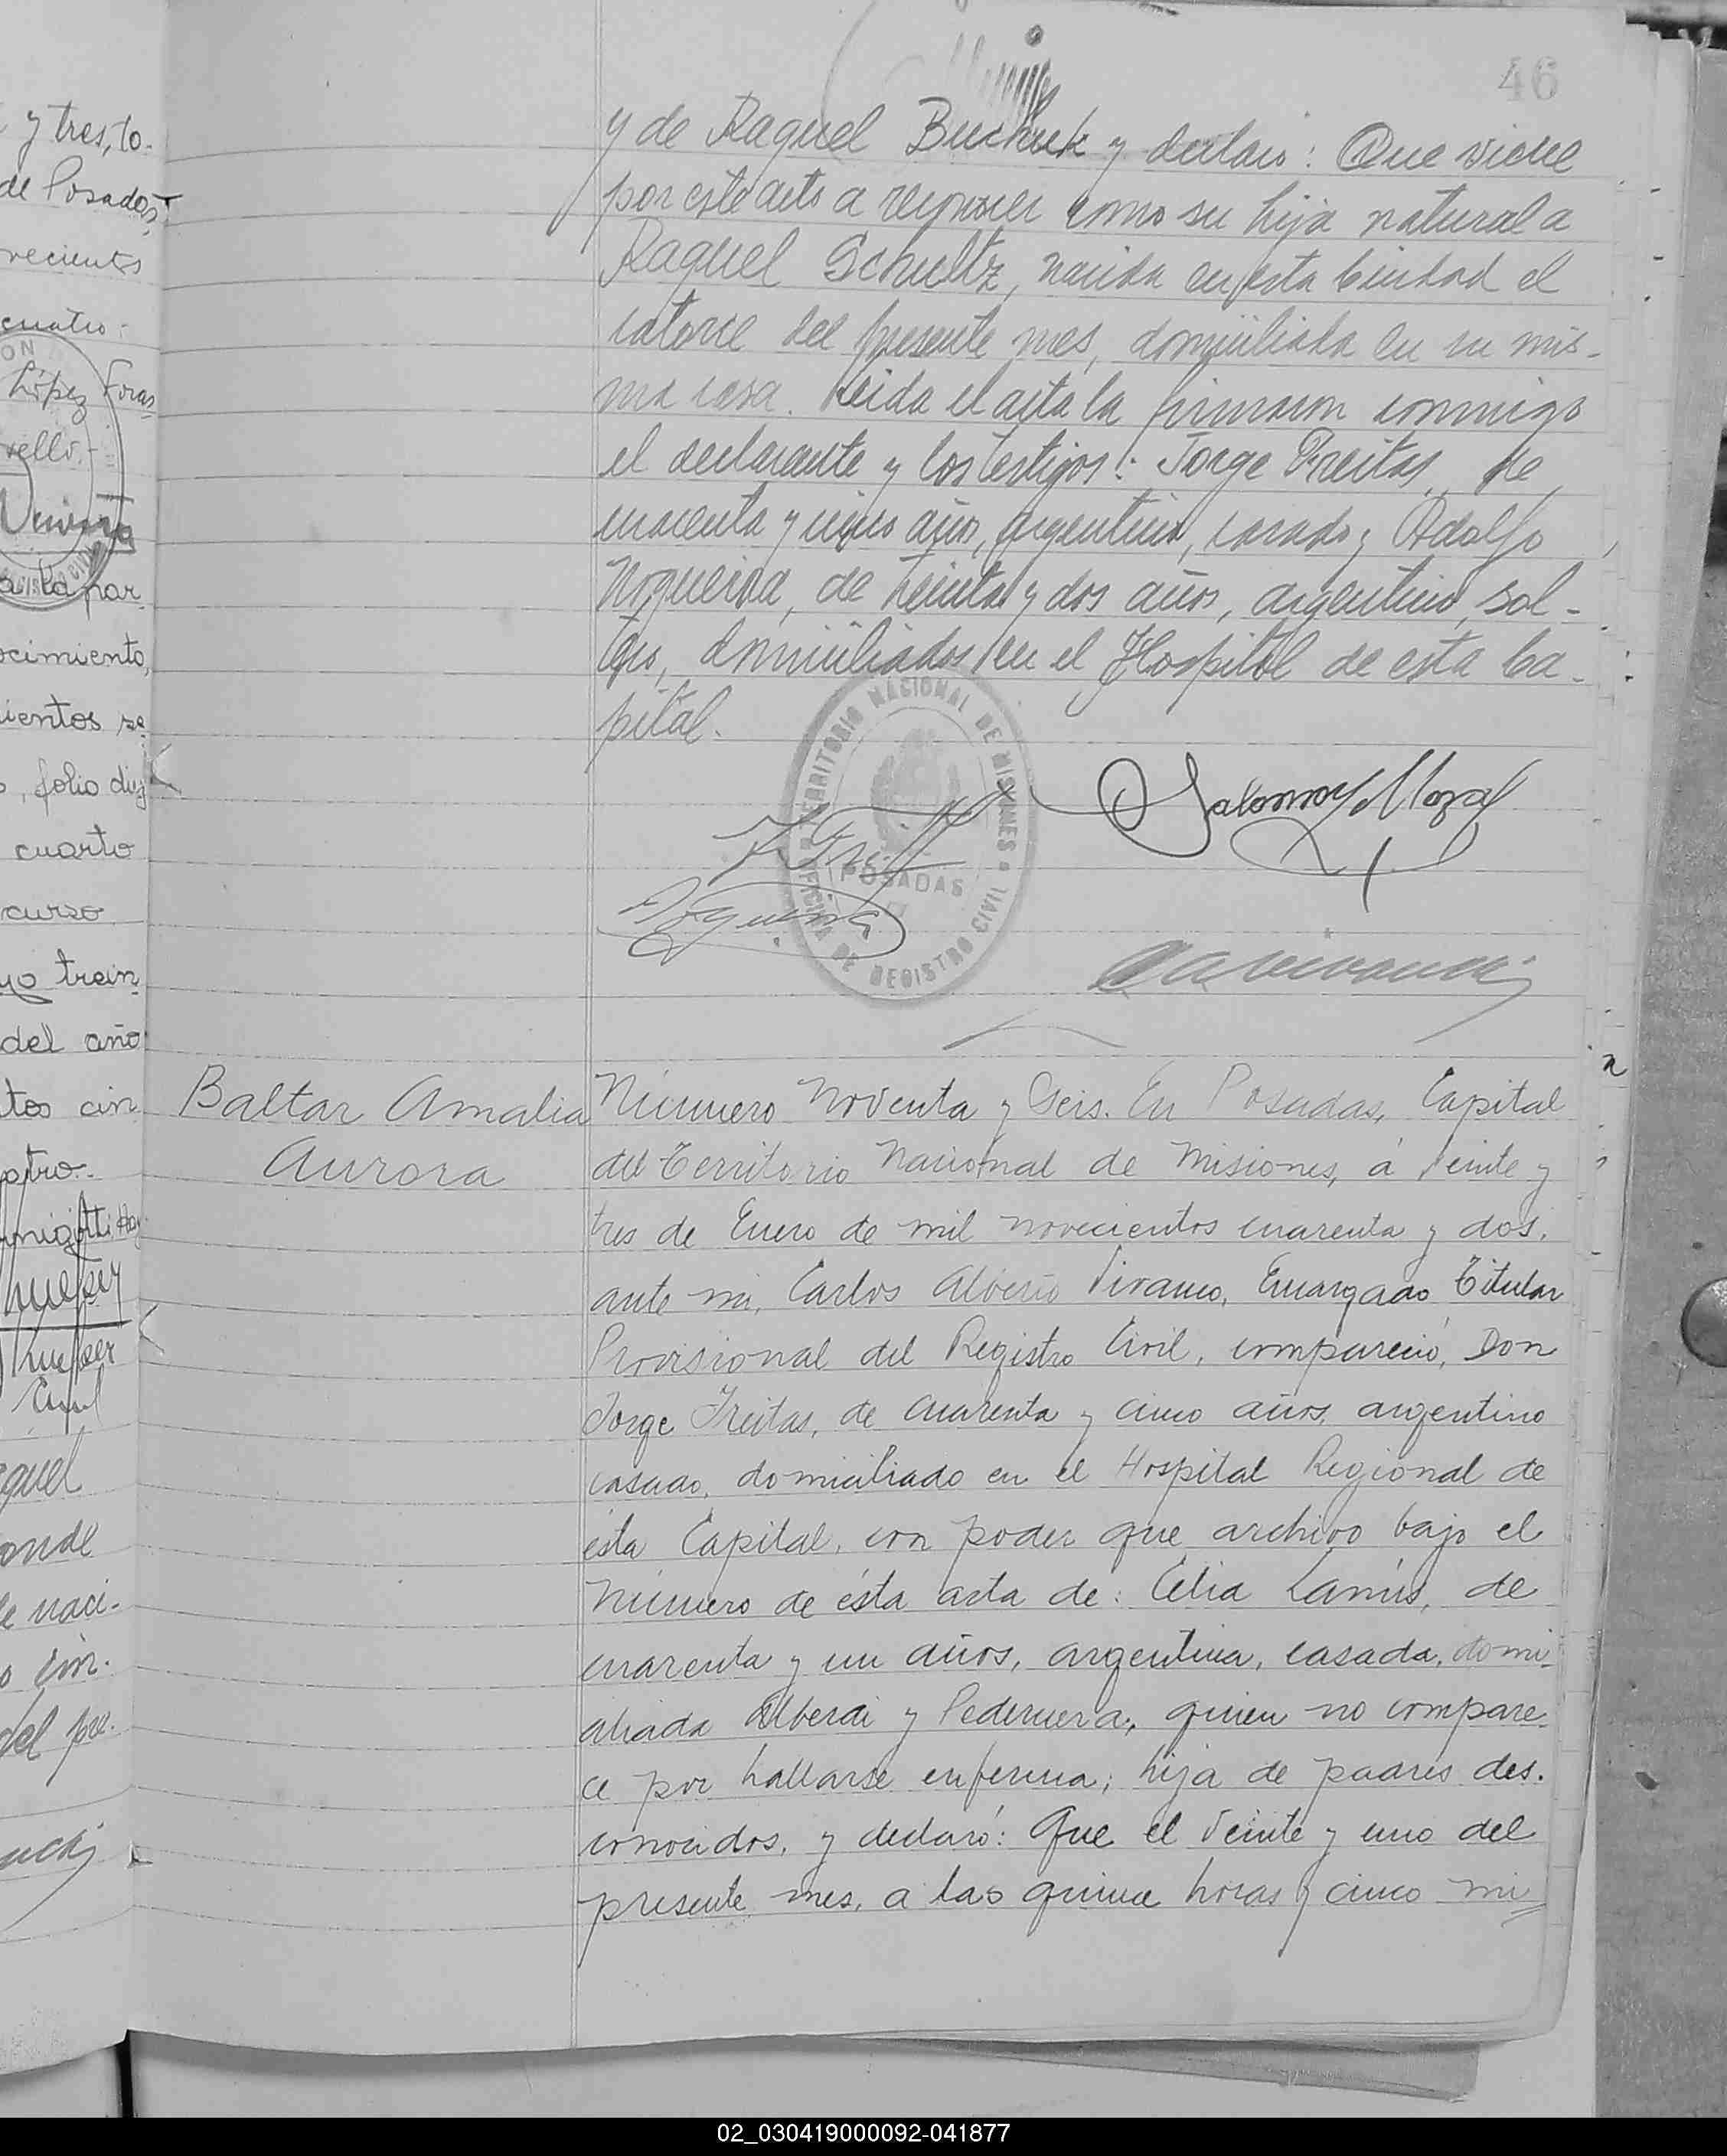 46
y tres, lo-
de Posadas,
cuatro:
López Foras
vello.-
a la par
ocimiento,
ientos se
, folio diez
cuarto
curso
yo trein
del año
tos cin
otro.-
quel
onde
de naci-
o cin-
del pre-
y de Raquel Buchuk y declaró: Que viene
por este acto a reconocer como su hija natural a
Raquel Schultz, nacida en esta Ciudad el
catorce del presente mes, domiciliada en su mis-
ma casa. Leida el acta la firmaron conmigo
el declarante y los testigos: Jorge Freitas, de
cuarenta y cinco años, argentino, casado y Adolfo
Nogueira, de treinta y dos años, argentino, sol-
tero, domiciliados en el Hospital de esta Ca-
pital.
TERRITORIO NACIONAL DE MISIONES
POSADAS
OFICINA DE REGISTRO CIVIL
Baltar Amalia
Aurora
Número Noventa y Seis. En Posadas, Capital
del Territorio Nacional de Misiones, á Veinte y
tres de Enero de mil novecientos cuarenta y dos,
ante mi, Carlos Alberto Vivanco, Encargado Titular
Provisional del Registro Civil, compareció, Don
Jorge Freitas, de cuarenta y cinco años, argentino
casado, domiciliado en el Hospital Regional de
ésta Capital, con poder que archivo bajo el
Número de ésta acta de: Celia Lanús, de
cuarenta y un años, argentina, casada, domi-
ciliada Alberdi y Pedernera, quien no compare-
ce por hallarse enferma; hija de padres des-
conocidos, y declaró: Que el Veinte y uno del
presente mes, a las quince horas y cinco mi
02_030419000092-041877